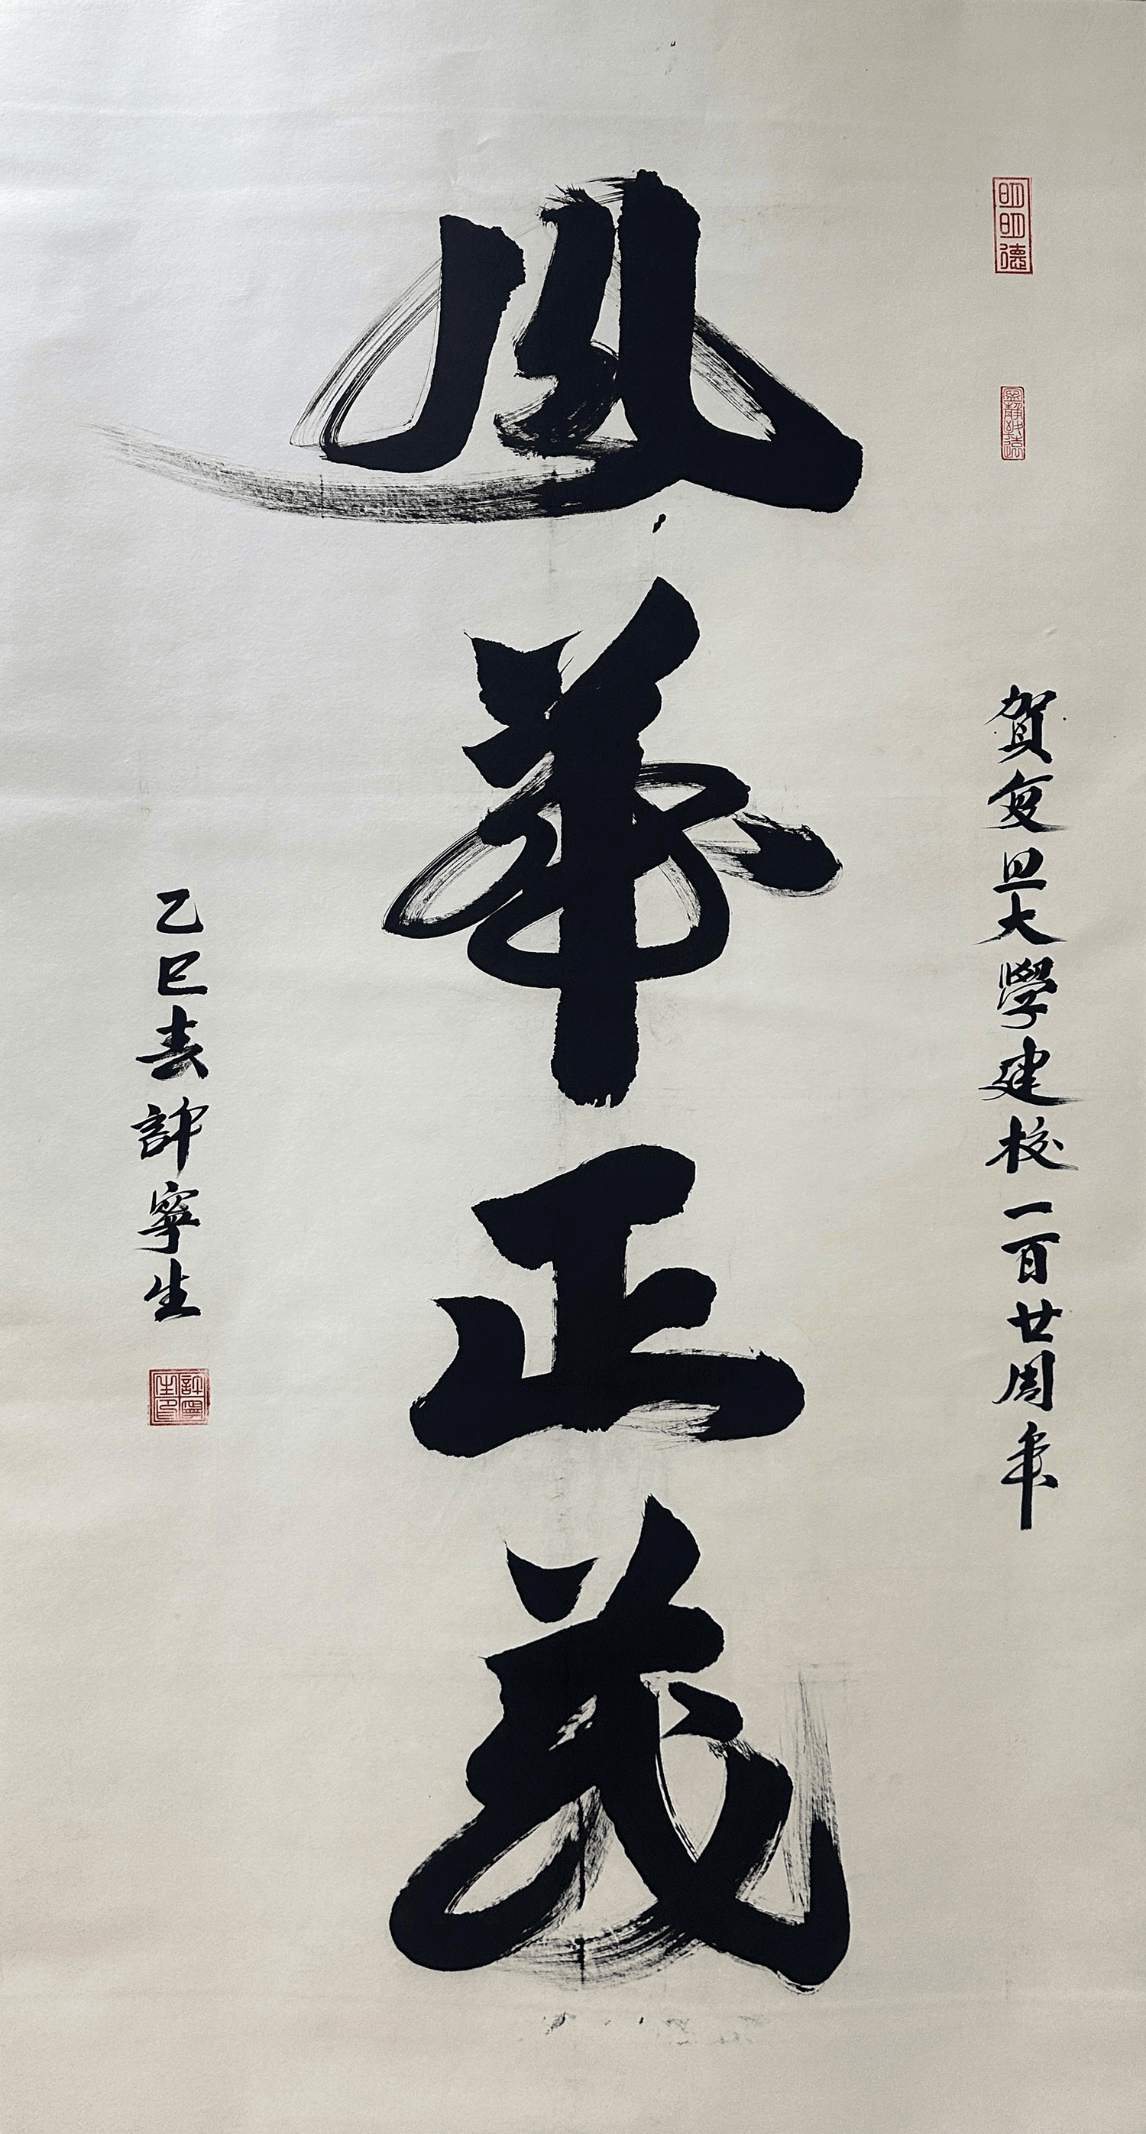 明明德
寧靜致遠
賀复旦大學建校一百廿周年
風華正茂
乙巳春許寧生
許寧生印